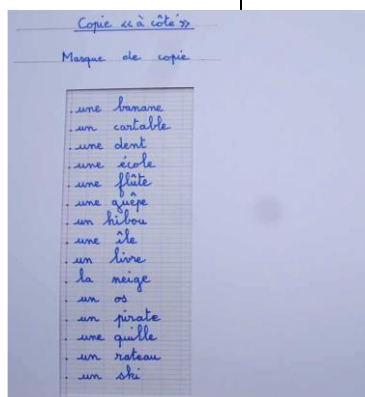 Copie << à côté >>
Masque de copie
. une banane
. un cartable
. une dent
. une école
. une flûte
. une guêpe
. un hibou
. une île
. un livre
. la neige
. un os
. un pirate
. une quille
. un rateau
. un ski